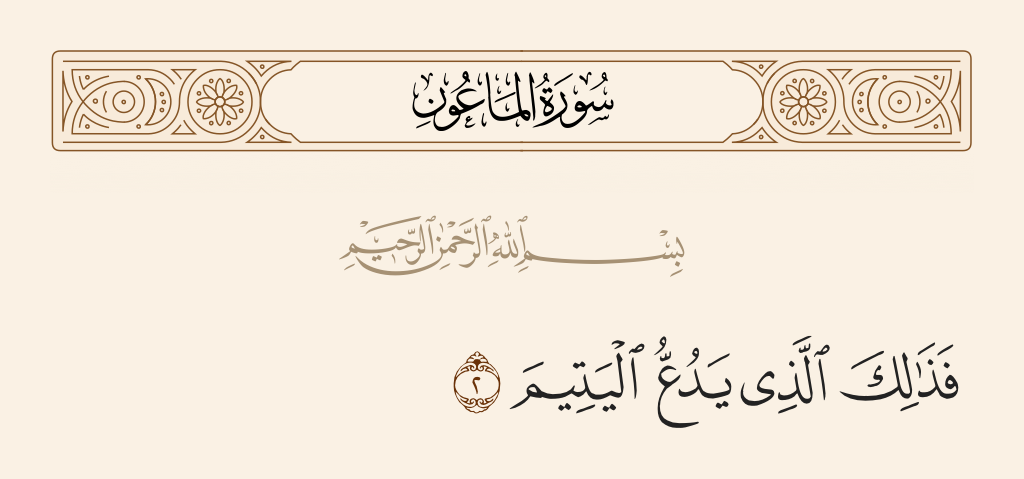 سُورَةُ المَاعُونِ
بِسْمِ ٱللَّهِ ٱلرَّحْمَٰنِ ٱلرَّحِيمِ
فَذَٰلِكَ ٱلَّذِى يَدُعُّ ٱلْيَتِيمَ ٢